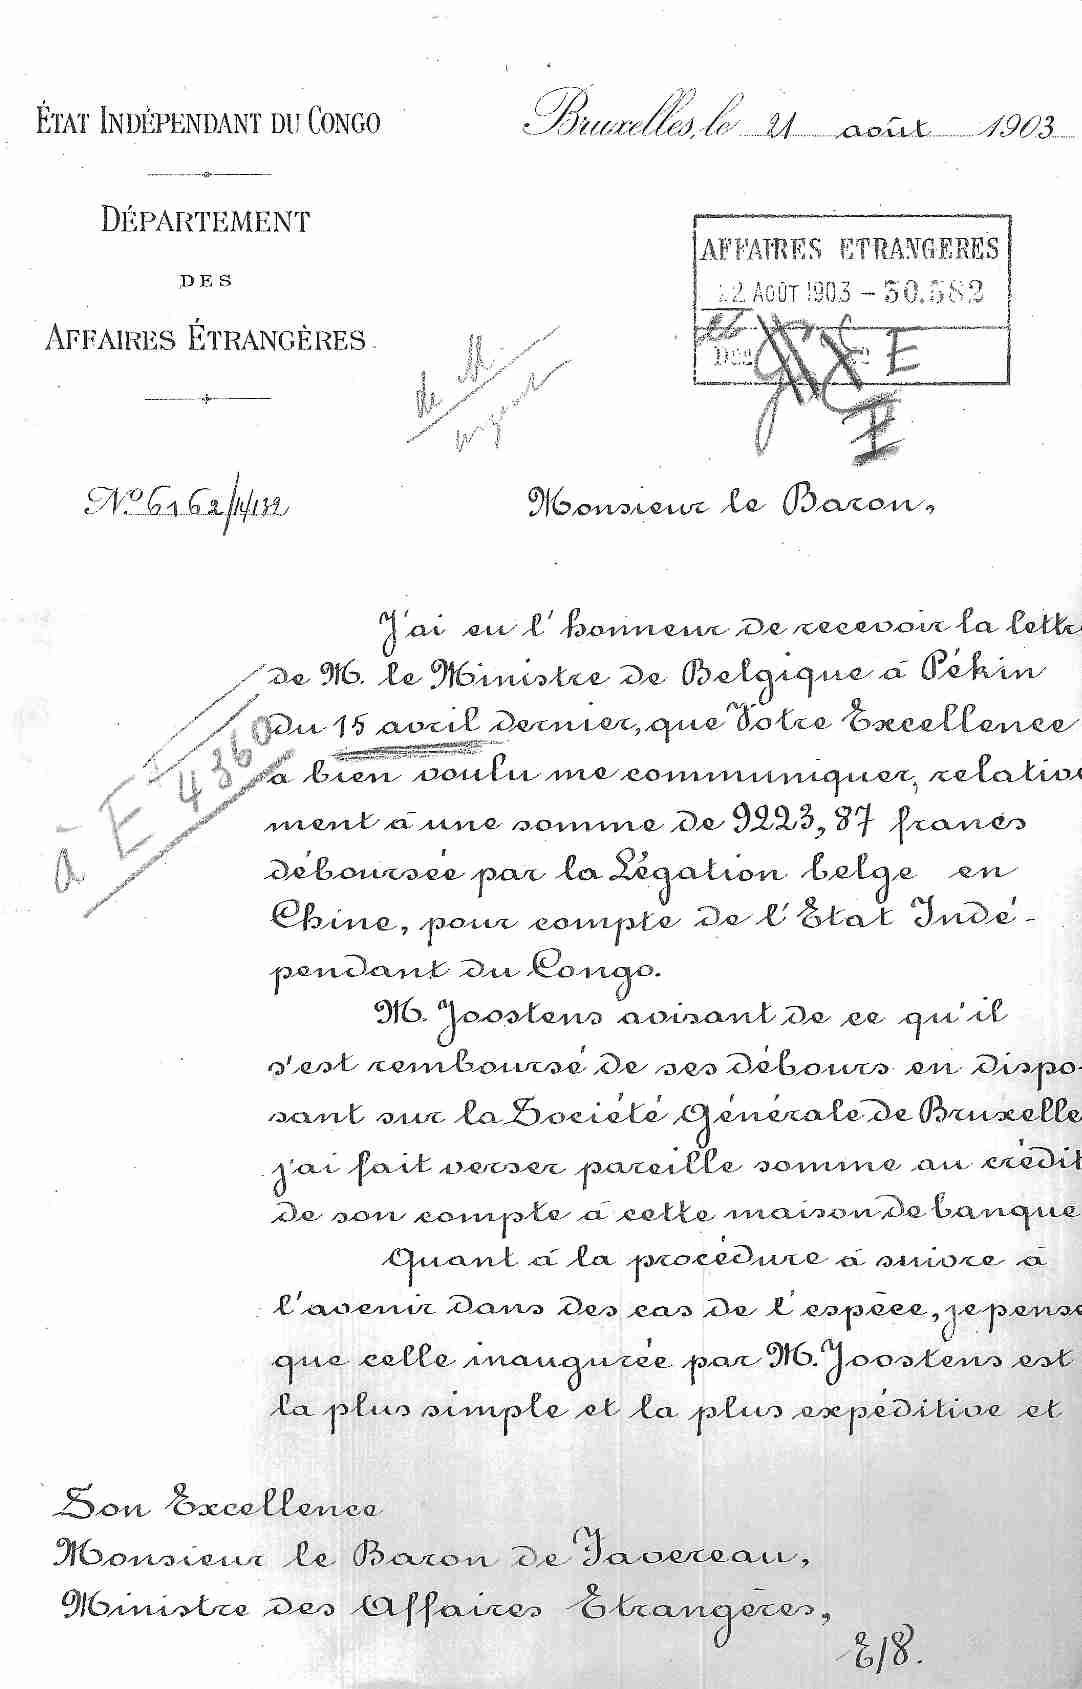 ÉTAT INDÉPENDANT DU CONGO
Bruxelles, le 21 août 1903
DÉPARTEMENT
DES
AFFAIRES ÉTRANGÈRES.
AFFAIRES ETRANGERES
22 AOÛT 1903 - 30.582
E
de M
urgent
No 6162/14/132
Monsieur le Baron,
J'ai eu l'honneur de recevoir la lettre
de M. le Ministre de Belgique à Pékin
du 15 avril dernier, que Votre Excellence
a bien voulu me communiquer, relative
ment à une somme de 9223,87 francs
déboursée par la Légation belge en
Chine, pour compte de l'Etat Indé-
pendant du Congo.
à E 4360
M. Joostens avisant de ce qu'il
s'est remboursé de ses débours en dispo-
sant sur la Société Générale de Bruxelle
j'ai fait verser pareille somme au crédit
de son compte à cette maison de banque
Quant à la procédure à suivre à
l'avenir dans des cas de l'espèce, je pense
que celle inaugurée par M. Joostens est
la plus simple et la plus expéditive et
Son Excellence
Monsieur le Baron de Favereau,
Ministre des Affaires Etrangères,
E/8.